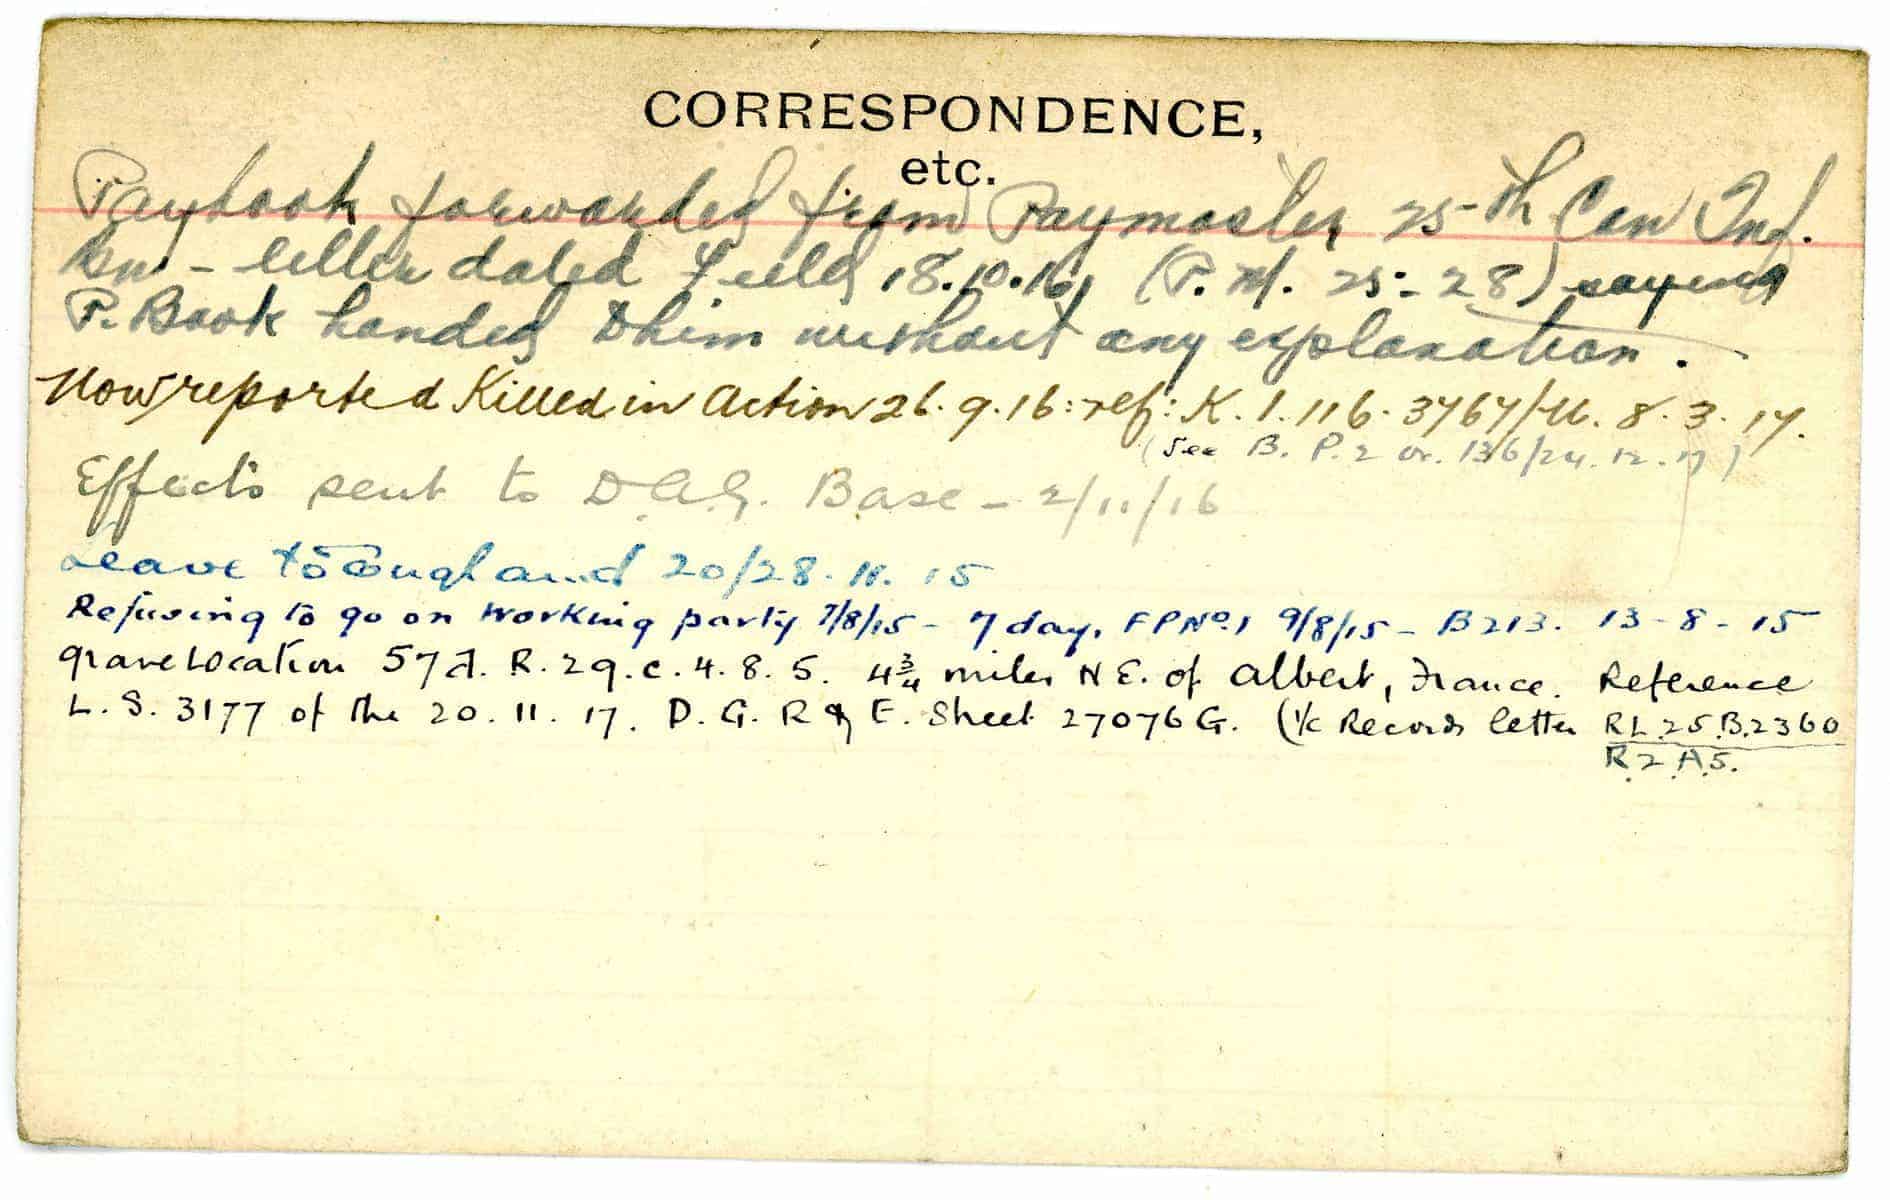 CORRESPONDENCE,
etc.
Paybook forwarded from Paymaster 25th Can Inf.
Bn. - letter dated Field 18.10.16, (P.M. 25-28) saying
P. Book handed to him without any explanation.
Now reported Killed in Action 26.9.16: ref: K.1.116.3767/M. 8.3.17.
(See B. P. 2 Or. 136/24.12.17)
Effects sent to D.A.G. Base - 2/11/16
Leave to England 20/28.11.15
Refusing to go on working party 7/8/15 - 7 days FP No. 1 9/8/15 - B213. 13-8-15
grave Location 57d. R.29.c.4.8.5. 4¾ miles N E. of Albert, France. Reference
L.S. 3177 of the 20.11.17. D.G.R & E. Sheet 27076G. (I/c Records letter RL.25.B.2360
R.2.A.5.